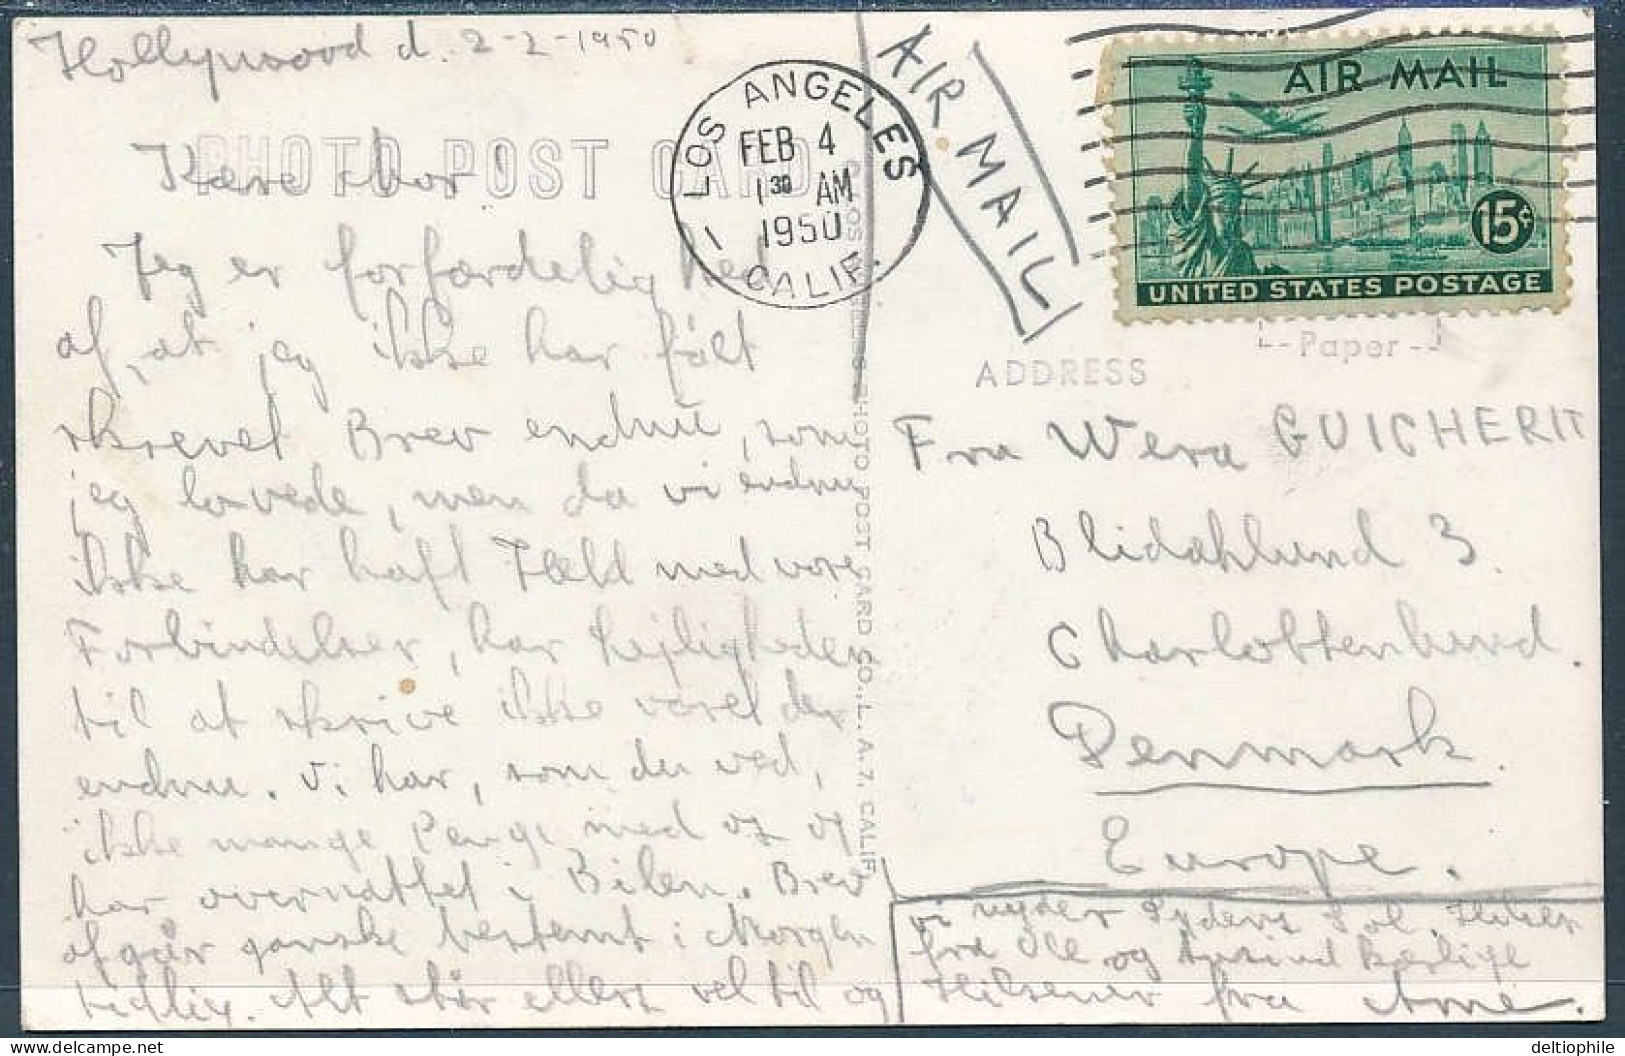 Hollywood d. 2-2-1950
PHOTO POST CARD
Kære Mor!
Jeg er forfærdelig ked
af, at jeg ikke har fået
skrevet Brev endnu, som
jeg lovede, men da vi endnu
ikke har haft Held med vore
Forbindelser, har Lejligheden
til at skrive ikke været der
endnu. Vi har, som du ved,
ikke mange Penge med os og
har overnattet i Bilen. Brev
afgår ganske bestemt i Morgen
tidlig. Alt står ellers vel til og
LOS ANGELES
FEB 4
1 30 AM
1950
CALIF.
AIR MAIL
AIR MAIL
15¢
UNITED STATES POSTAGE
Paper
ADDRESS
PHOTO POST CARD CO., L. A. 7, CALIF.
Fra Wera GUICHERIT
Blidahlund 3.
Charlottenlund.
Denmark.
Europe.
vi nyder Sydens Sol. Hilsen
fra Ole og tusind kærlige
Hilsener fra Arne.
deltiophile